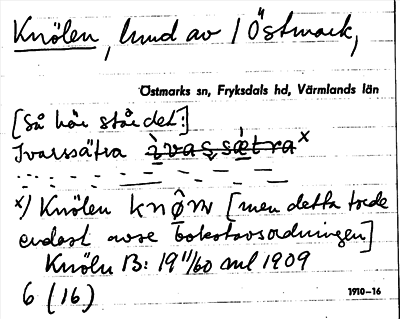 Knölen, lund av 1 Östmark,
Östmarks sn, Fryksdals hd, Värmlands län
[Så här står det:]
Ivarssätra ì̱vas̩sǽ̱tra x
x) Knölen knô̱n [men detta torde
endast avse bokstavsordningen]
Knöln B: 19 11/60 ml 1909
6 (16)
1910-16